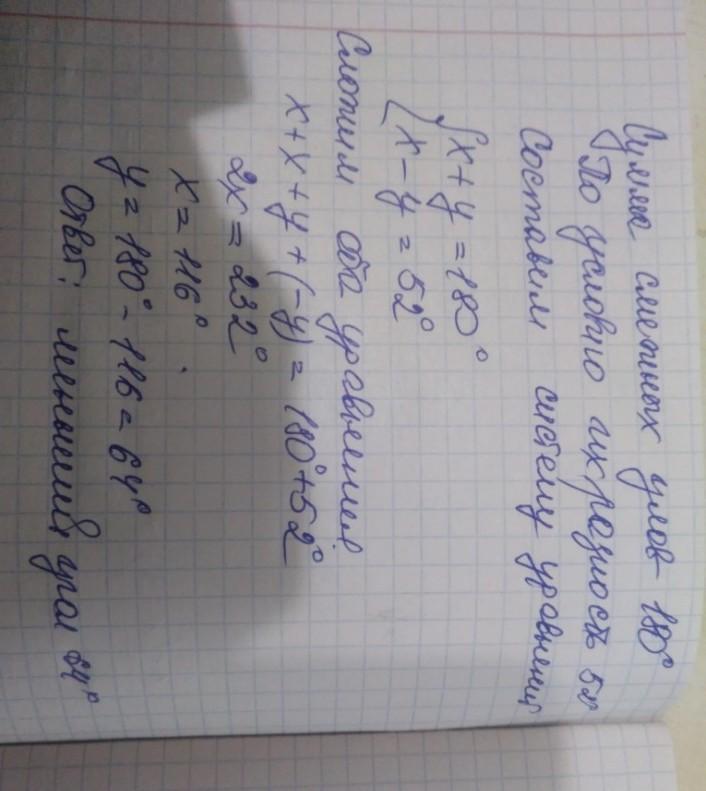 Сумма смежных углов 180°
По условию их разность 52°
Составим систему уравнений
{ x + y = 180°
x - y = 52°
Сложим оба уравнения
x + x + y + (-y) = 180° + 52°
2x = 232°
x = 116°
y = 180° - 116 = 64°
Ответ: меньший угол 64°